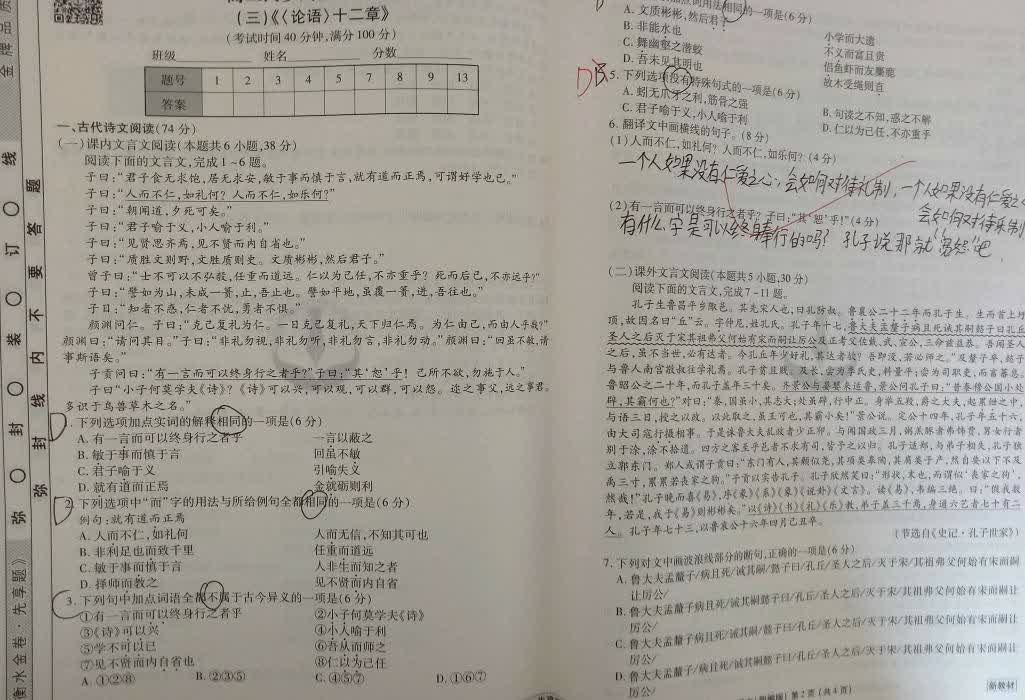 (三)《〈论语〉十二章》
(考试时间40分钟,满分100分)
班级 姓名 分数
题号 1 2 3 4 5 7 8 9 13
答案
一、古代诗文阅读(74分)
(一)课内文言文阅读(本题共6小题,38分)
阅读下面的文言文,完成1~6题。
子曰:“君子食无求饱,居无求安,敏于事而慎于言,就有道而正焉,可谓好学也已。”
子曰:“人而不仁,如礼何?人而不仁,如乐何?”
子曰:“朝闻道,夕死可矣。”
子曰:“君子喻于义,小人喻于利。”
子曰:“见贤思齐焉,见不贤而内自省也。”
子曰:“质胜文则野,文胜质则史。文质彬彬,然后君子。”
曾子曰:“士不可以不弘毅,任重而道远。仁以为己任,不亦重乎?死而后已,不亦远乎?”
子曰:“譬如为山,未成一篑,止,吾止也。譬如平地,虽覆一篑,进,吾往也。”
子曰:“知者不惑,仁者不忧,勇者不惧。”
颜渊问仁。子曰:“克己复礼为仁。一日克己复礼,天下归仁焉。为仁由己,而由人乎哉?”
颜渊曰:“请问其目。”子曰:“非礼勿视,非礼勿听,非礼勿言,非礼勿动。”颜渊曰:“回虽不敏,请
事斯语矣。”
子贡问曰:“有一言而可以终身行之者乎?”子曰:“其‘恕’乎!己所不欲,勿施于人。”
子曰“小子何莫学夫《诗》?《诗》可以兴,可以观,可以群,可以怨。迩之事父,远之事君。
多识于鸟兽草木之名。”
1.下列选项加点实词的解释相同的一项是(6分)
A.有一言而可以终身行之者乎 一言以蔽之
B.敏于事而慎于言 回虽不敏
C.君子喻于义 引喻失义
D.就有道而正焉 金就砺则利
2.下列选项中“而”字的用法与所给例句全都相同的一项是(6分)
例句:就有道而正焉
A.人而不仁,如礼何 人而无信,不知其可也
B.非利足也而致千里 任重而道远
C.敏于事而慎于言 人非生而知之者
D.择师而教之 见不贤而内自省
3.下列句中加点词语全都不属于古今异义的一项是(6分)
①有一言而可以终身行之者乎 ②小子何莫学夫《诗》
③《诗》可以兴 ④小人喻于利
⑤学不可以已 ⑥吾从而师之
⑦见不贤而内自省也 ⑧仁以为己任
A.①②⑧ B.②③⑤ C.④⑤⑦ D.①⑥⑦
衡水金卷·先享题》
弥 封 装 订 线
弥 封 线 内 不 要 答 题
相同的一项是(6分)
A.文质彬彬,然后君子 小学而大遗
B.非能水也 不义而富且贵
C.舞幽壑之潜蛟 侣鱼虾而友麋鹿
D.吾未见其明也 故木受绳则直
D
5.下列选项没有特殊句式的一项是(6分)
A.蚓无爪牙之利,筋骨之强 B.句读之不知,惑之不解
C.君子喻于义,小人喻于利 D.仁以为己任,不亦重乎
6.翻译文中画横线的句子。(8分)
(1)人而不仁,如礼何?人而不仁,如乐何?(4分)
一个人如果没有仁爱之心,会如何对待礼制,一个人如果没有仁爱之
会如何对待乐制
(2)有一言而可以终身行之者乎?子曰:“其‘恕’乎!”(4分)
有什么字是可以终身奉行的吗?孔子说那就“宽恕”吧.
(二)课外文言文阅读(本题共5小题,30分)
阅读下面的文言文,完成7~11题。
孔子生鲁昌平乡陬邑。其先宋人也,曰孔防叔。鲁襄公二十二年而孔子生。生而首上圩
顶,故因名曰“丘”云。字仲尼,姓孔氏。孔子年十七,鲁大夫孟釐子病且死诫其嗣懿子曰孔丘
圣人之后灭于宋其祖弗父何始有宋而嗣让厉公及正考父佐戴、武、宣公,三命兹益恭。吾闻圣人
之后,虽不当世,必有达者。今孔丘年少好礼,其达者欤?吾即没,若必师之。”及釐子卒,懿子
与鲁人南宫敬叔往学礼焉。孔子贫且贱。及长,尝为季氏史,料量平;尝为司职吏,而畜蕃息。
鲁昭公之二十年,而孔子盖年三十矣。齐景公与晏婴来适鲁,景公问孔子曰:“昔秦穆公国小处
辟,其霸何也?”对曰:“秦,国虽小,其志大;处虽辟,行中正。身举五羖,爵之大夫,起累绁之中,
与语三日,授之以政。以此取之,虽王可也,其霸小矣!”景公说。定公十四年,孔子年五十六,
由大司寇行摄相事。于是诛鲁大夫乱政者少正卯。与闻国政三月,粥羔豚者弗饰贾,男女行者
别于涂,涂不拾遗。四方之客至乎邑者不求有司,皆予之以归。孔子适郑,与弟子相失,孔子独
立郭东门。郑人或谓子贡曰:“东门有人,其颡似尧,其项类皋陶,其肩类子产,然自要以下不及
禹三寸,累累若丧家之狗。”子贡以实告孔子。孔子欣然笑曰:“形状,末也,而谓似‘丧家之狗’,
然哉!”孔子晚而喜《易》,序《彖》《系》《象》《说卦》《文言》。读《易》,韦编三绝。曰:“假我数
年,若是,我于《易》则彬彬矣。”以《诗》《书》《礼》《乐》教,弟子盖三千焉,身通六艺者七十有二
人。孔子年七十三,以鲁哀公十六年四月己丑卒。
(节选自《史记·孔子世家》)
7.下列对文中画波浪线部分的断句,正确的一项是(6分)
A.鲁大夫孟釐子/病且死/诫其嗣/懿子曰/孔丘/圣人之后/灭于宋/其祖弗父何始有宋而嗣
让厉公/
B.鲁大夫孟釐子病且死/诫其嗣懿子曰/孔丘/圣人之后/灭于宋/其祖弗父何始有宋而嗣让
厉公/
C.鲁大夫孟釐子病且死/诫其嗣/懿子曰/孔丘/圣人之后/灭于宋/其祖弗父何始有宋而嗣让
厉公/
D.鲁大夫孟釐子/病且死/诫其嗣懿子曰/孔丘/圣人之后/灭于宋/其祖弗父何始有宋而嗣让
厉公/
第2页(共4页)
新教材